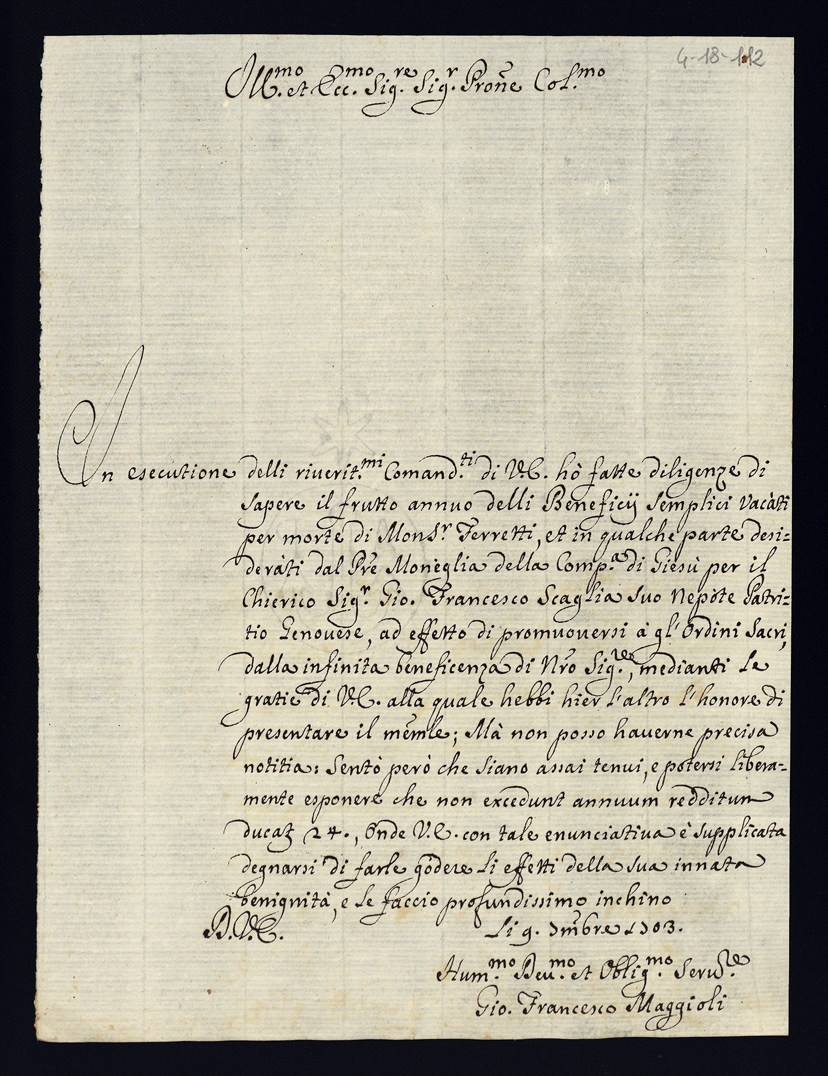 4-18-112
Ill.mo et Ecc.mo Sig.re Sig.r Prone Col.mo
In esecutione delli riverit.mi Comand.ti di V.E. hò fatte diligenze di
sapere il frutto annuo delli Beneficij semplici vacàti
per morte di Mons.r Ferretti, et in qualche parte desi=
deràti dal Pre Moneglia della Comp.a di Giesù per il
Chierico Sig.r Gio. Francesco Scaglia suo Nepote Patri=
tio Genovese, ad effetto di promuoversi à gl'Ordini Sacri,
dalla infinita beneficenza di Nro Sig.re, medianti le
gratie di V.E. alla quale hebbi hier l'altro l'honore di
presentare il memle; Mà non posso haverne precisa
notitia: Sentò però che siano assai tenui, e potersi libera=
mente esponere che non excedunt annuum redditum
ducat 24., Onde V.E. con tale enunciativa è supplicata
degnarsi di farle gòdere li effetti della sua innata
benignità, e le faccio profundissimo inchino
D.V.E. Li 9. 7mbre 1703.
Hum.mo Deu.mo et Oblig.mo Seru.re
Gio. Francesco Maggioli